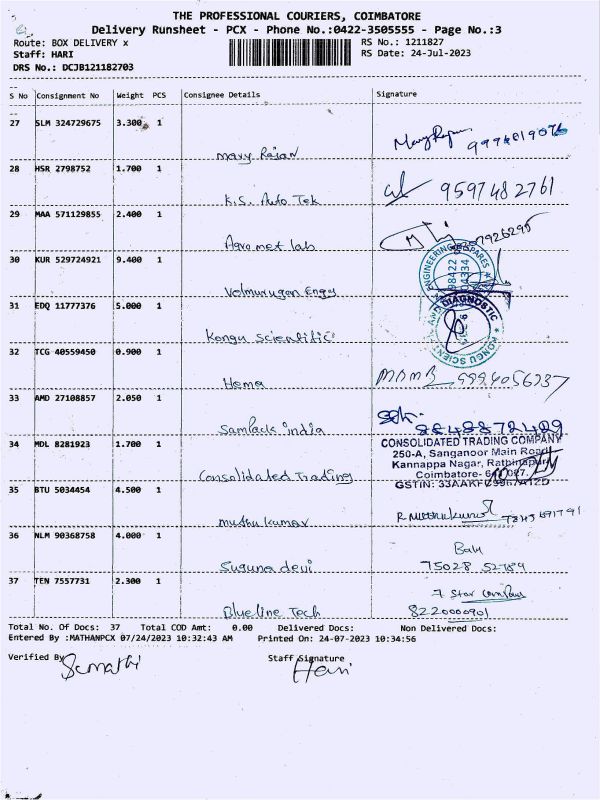 THE PROFESSIONAL COURIERS, COIMBATORE
Delivery Runsheet - PCX - Phone No.:0422-3505555 - Page No.:3
Route: BOX DELIVERY x
RS No.: 1211827
Staff: HARI
RS Date: 24-Jul-2023
DRS No.: DCJB121182703
S No Consignment No Weight PCS Consignee Details Signature
27 SLM 324729675 3.300 1
Mary Rajan
28 HSR 2798752 1.700 1
9597482761
K.S. Auto Tek
29 MAA 571129855 2.400 1
Agro met lab
30 KUR 529724921 9.400 1
ENGINEERING SPARES
98422
04334
Velmurugan Engg
31 EDQ 11777376 5.000 1
KONGU SCIENTIFIC AND DIAGNOSTIC
Kongu Scientific
32 TCG 40559450 0.900 1
Hema
33 AMD 27108857 2.050 1
8848872429
Samlack india
34 MDL 8281923 1.700 1
CONSOLIDATED TRADING COMPANY
250-A, Sanganoor Main Road
Kannappa Nagar, Rathinapuri
Coimbatore-
GSTIN:
Consolidated Trading
35 BTU 5034454 4.500 1
R Muthukumar
Muthu kumar
36 NLM 90368758 4.000 1
75028 52789
Suguna devi
37 TEN 7557731 2.300 1
7 Star
8220000901
Blueline Tech
Total No. Of Docs: 37 Total COD Amt: 0.00 Delivered Docs: Non Delivered Docs:
Entered By :MATHANPCX 07/24/2023 10:32:43 AM Printed On: 24-07-2023 10:34:56
Verified By Sumathi
Staff Signature Hari